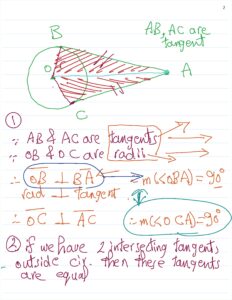 2
B
AB, AC are
tangent
O
A
C
①
∵ AB & AC are tangents
∵ OB & OC are radii
∴ OB ⊥ BA → m(<OBA) = 90°
rad ⊥ tangent
∴ OC ⊥ AC
∴ m(<OCA) = 90°
② if we have 2 intersecting tangents
outside cir. then these tangents
are equal